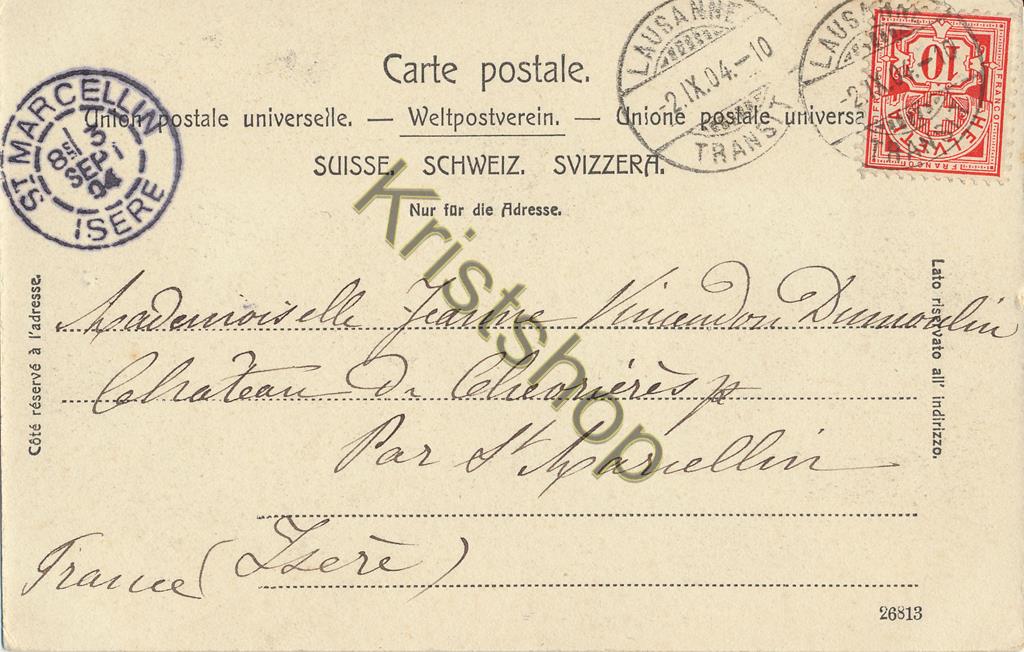 Carte postale.
Union postale universelle. — Weltpostverein. — Unione postale universa
SUISSE. SCHWEIZ. SVIZZERA.
Nur für die Adresse.
LAUSANNE
-2.IX.04.-10
TRANSIT
LAUSANNE
-2.IX.04.-10
TRANSIT
FRANCO
10
HELVETIA
FRANCO
ST MARCELLIN
8E 3
SEPT
04
ISÈRE
Côté réservé à l'adresse.
Lato riservato all' indirizzo.
Mademoiselle Jeanne Vincendon Dumoulin
Château De
Par St Marcellin
France (Isère)
26813
Kristshop